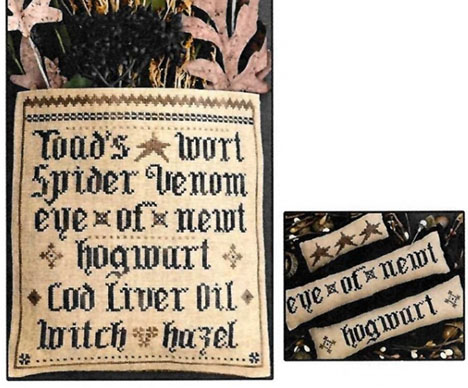 Toad's wort
Spider Venom
eye of newt
hogwart
Cod Liver Oil
witch hazel
eye of newt
hogwart